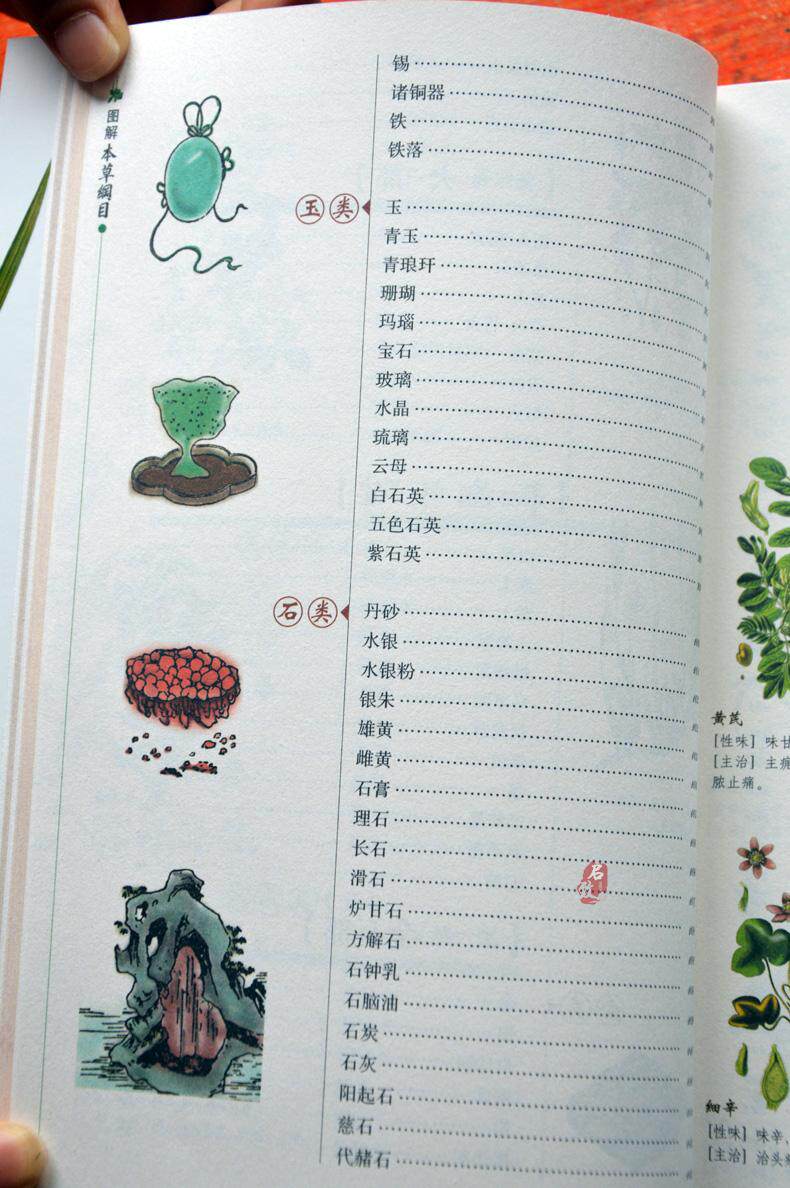 图解本草綱目
锡
诸铜器
铁
铁落
玉类
玉
青玉
青琅玕
珊瑚
玛瑙
宝石
玻璃
水晶
琉璃
云母
白石英
五色石英
紫石英
石类
丹砂
水银
水银粉
银朱
雄黄
雌黄
石膏
理石
长石
滑石
炉甘石
方解石
石钟乳
石脑油
石炭
石灰
阳起石
慈石
代赭石
黄芪
[性味] 味甘
[主治] 主
脓止痛。
細辛
[性味] 味辛，
[主治] 治头